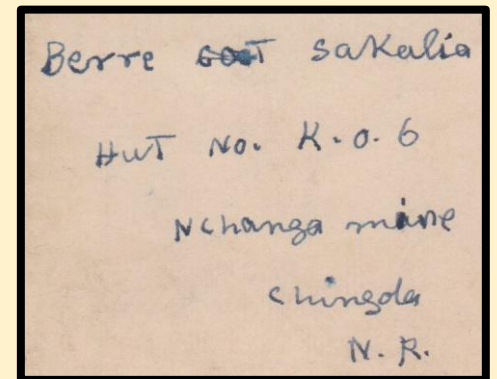 Berre sakalia
HUT No. K.O.6
Nchanga mine
chingola
N.R.